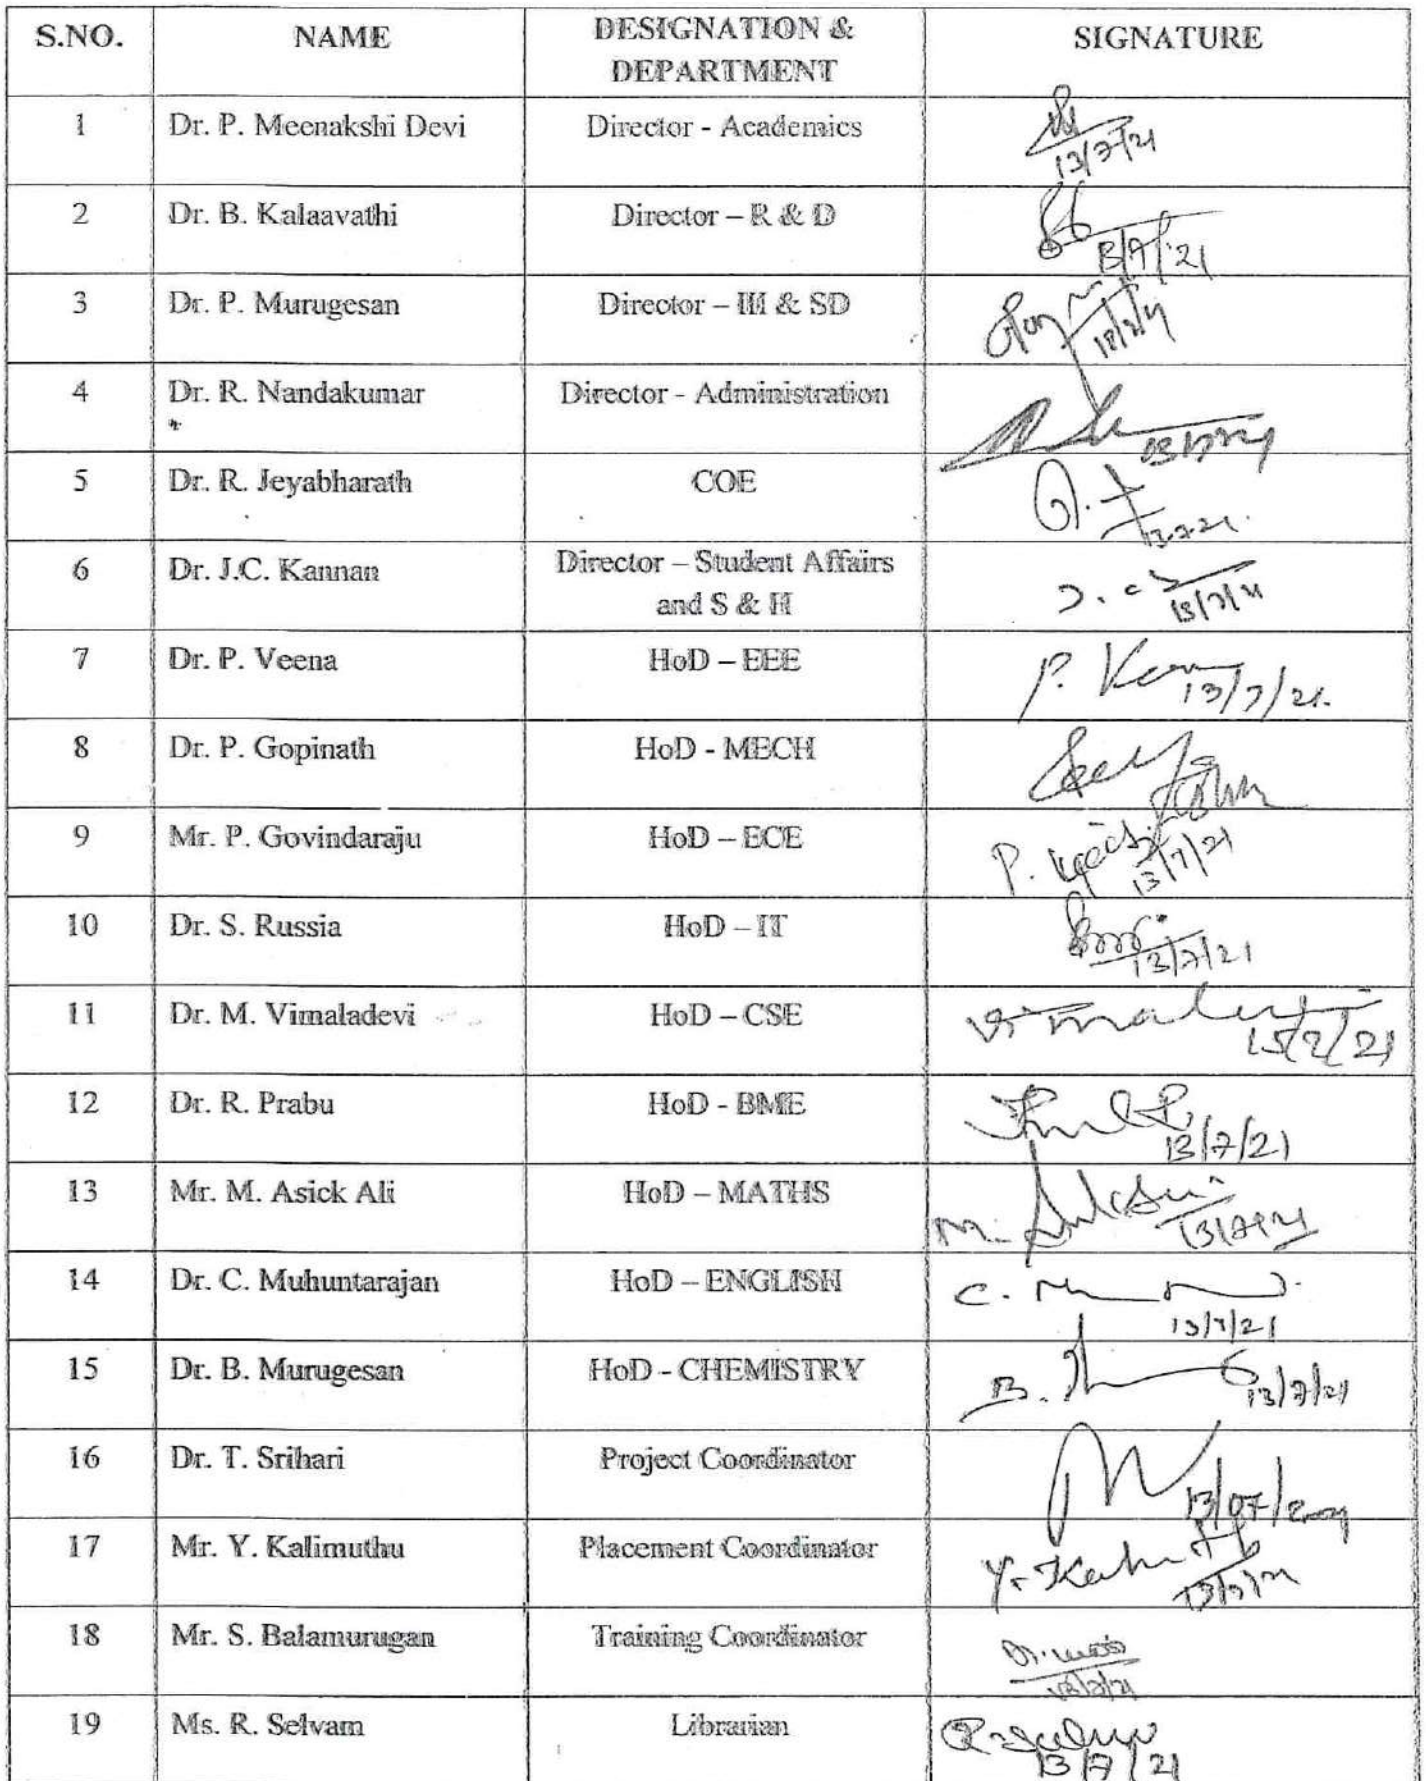 S.NO. NAME DESIGNATION & DEPARTMENT SIGNATURE
1 Dr. P. Meenakshi Devi Director - Academics 13/7/21
2 Dr. B. Kalaavathi Director – R & D 13/7/21
3 Dr. P. Murugesan Director – III & SD 13/7/21
4 Dr. R. Nandakumar Director - Administration
5 Dr. R. Jeyabharath COE 13.7.21.
6 Dr. J.C. Kannan Director – Student Affairs and S & H J. C 13/7/21
7 Dr. P. Veena HoD – EEE P. Veena 13/7/21.
8 Dr. P. Gopinath HoD - MECH
9 Mr. P. Govindaraju HoD – ECE P. 13/7/21
10 Dr. S. Russia HoD – IT 13/7/21
11 Dr. M. Vimaladevi HoD – CSE
12 Dr. R. Prabu HoD - BME 13/7/21
13 Mr. M. Asick Ali HoD – MATHS M.
14 Dr. C. Muhuntarajan HoD – ENGLISH C. 13/7/21
15 Dr. B. Murugesan HoD - CHEMISTRY B. 13/7/21
16 Dr. T. Srihari Project Coordinator 13/07/2021
17 Mr. Y. Kalimuthu Placement Coordinator Y. 13/7/21
18 Mr. S. Balamurugan Training Coordinator 13/7/21
19 Ms. R. Selvam Librarian 13/7/21